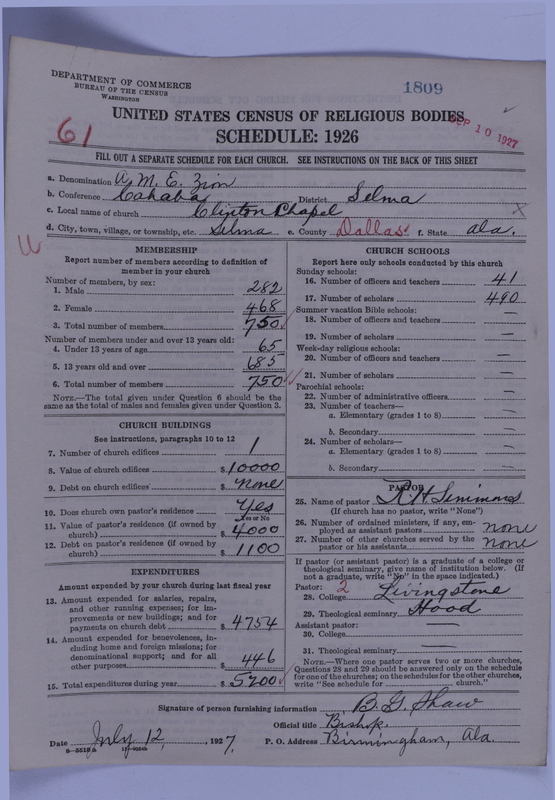 DEPARTMENT OF COMMERCE
BUREAU OF THE CENSUS
WASHINGTON
1809
61
UNITED STATES CENSUS OF RELIGIOUS BODIES
SCHEDULE: 1926
SEP 10 1927
FILL OUT A SEPARATE SCHEDULE FOR EACH CHURCH. SEE INSTRUCTIONS ON THE BACK OF THIS SHEET
a. Denomination A. M. E. Zion
b. Conference Cahaba District Selma
c. Local name of church Clinton Chapel
d. City, town, village, or township, etc. Selma e. County Dallas f. State Ala.
MEMBERSHIP
Report number of members according to definition of
member in your church
Number of members, by sex:
1. Male 282
2. Female 468
3. Total number of members 750
Number of members under and over 13 years old:
4. Under 13 years of age 65
5. 13 years old and over 685
6. Total number of members 750
NOTE.—The total given under Question 6 should be the
same as the total of males and females given under Question 3.
CHURCH BUILDINGS
See instructions, paragraphs 10 to 12
7. Number of church edifices 1
8. Value of church edifices $ 10000
9. Debt on church edifices $ none
10. Does church own pastor's residence Yes
Yes or No
11. Value of pastor's residence (if owned by
church) $ 4000
12. Debt on pastor's residence (if owned by
church) $ 1100
EXPENDITURES
Amount expended by your church during last fiscal year
13. Amount expended for salaries, repairs,
and other running expenses; for im-
provements or new buildings; and for
payments on church debt $ 4754
14. Amount expended for benevolences, in-
cluding home and foreign missions; for
denominational support; and for all
other purposes $ 446
15. Total expenditures during year $ 5200
CHURCH SCHOOLS
Report here only schools conducted by this church
Sunday schools:
16. Number of officers and teachers 41
17. Number of scholars 490
Summer vacation Bible schools:
18. Number of officers and teachers —
19. Number of scholars —
Week-day religious schools:
20. Number of officers and teachers —
21. Number of scholars —
Parochial schools:
22. Number of administrative officers —
23. Number of teachers—
a. Elementary (grades 1 to 8) —
b. Secondary —
24. Number of scholars—
a. Elementary (grades 1 to 8) —
b. Secondary —
PASTOR
25. Name of pastor R. H. Simmons
(If church has no pastor, write "None")
26. Number of ordained ministers, if any, em-
ployed as assistant pastors none
27. Number of other churches served by the
pastor or his assistants none
If pastor (or assistant pastor) is a graduate of a college or
theological seminary, give name of institution below. (If
not a graduate, write "No" in the space indicated.)
Pastor: 2
28. College Livingstone
29. Theological seminary Hood
Assistant pastor:
30. College —
31. Theological seminary —
NOTE.—Where one pastor serves two or more churches,
Questions 28 and 29 should be answered only on the schedule
for one of the churches; on the schedules for the other churches,
write "See schedule for church."
Signature of person furnishing information B. G. Shaw
Official title Bishop
Date July 12, 1927. P. O. Address Birmingham, Ala.